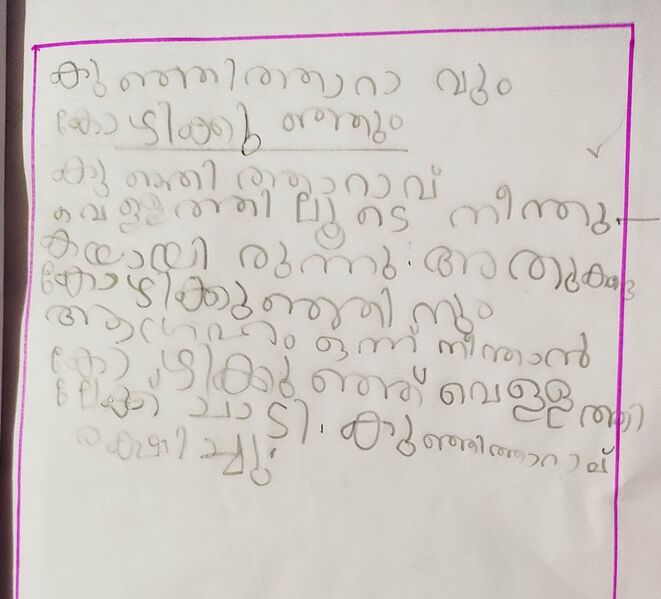 കുഞ്ഞിത്താറാ വും
കോഴിക്കു ഞ്ഞും
കുഞ്ഞി ത്താറാവ്
വെള്ളത്തി ലൂടെ നീന്തു
കയായി രുന്നു. അതുകണ്ട
കോഴിക്കുഞ്ഞി നും
ആഗ്രഹം ഒന്ന് നീന്താൻ
കോഴിക്കു ഞ്ഞ് വെള്ളത്തി
ലേക്ക് ചാടി. കുഞ്ഞിത്താറാവ്
രക്ഷിച്ചു.